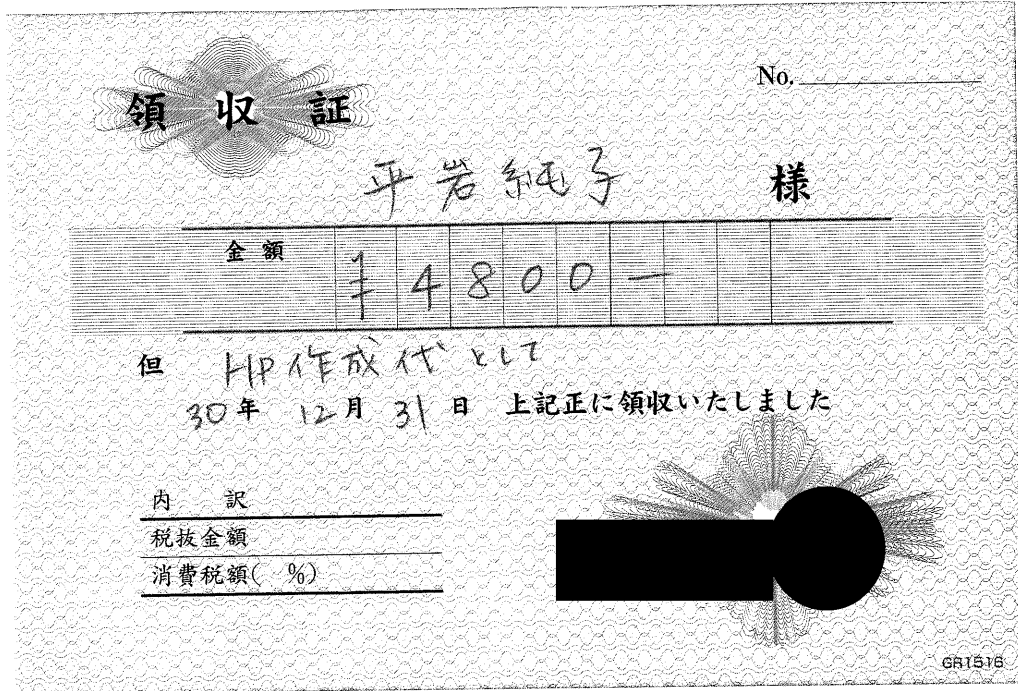 領収証
No.
平岩純子 様
金額 ¥4800-
但 HP作成代として
30年 12月 31日 上記正に領収いたしました
内訳
税抜金額
消費税額( %)
GR1516